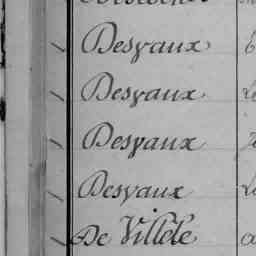 Desvaux
Desvaux
Desvaux
Desvaux
De Villèle